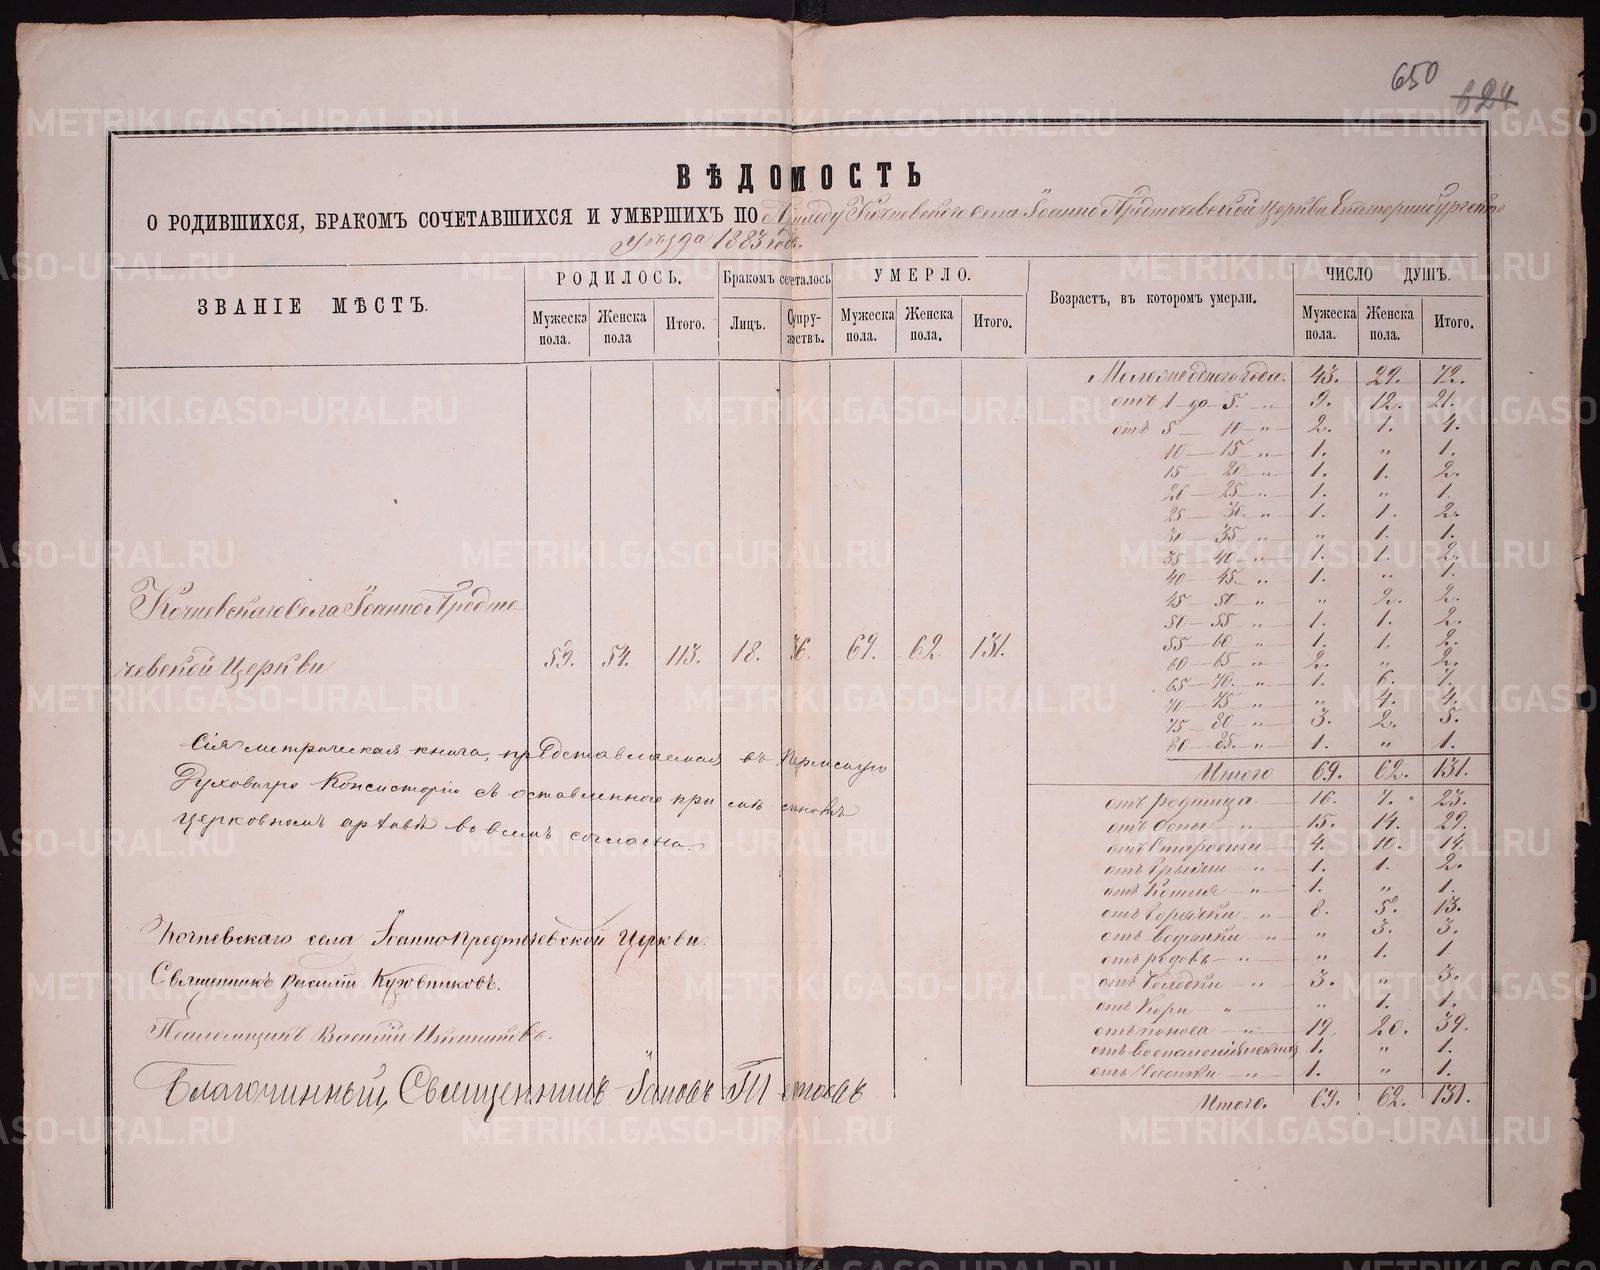 650
624
ВѢДОМОСТЬ
О РОДИВШИХСЯ, БРАКОМЪ СОЧЕТАВШИХСЯ И УМЕРШИХЪ ПО Приходу Кочневскаго села Іоанно Предтечевской церкви Екатеринбургскаго
уѣзда 1883 годъ.
ЗВАНІЕ МѢСТЪ.
РОДИЛОСЬ.
Мужеска пола.
Женска пола
Итого.
Бракомъ сочеталось
Лицъ.
Супружествъ.
УМЕРЛО.
Мужеска пола.
Женска пола.
Итого.
Возрастъ, въ которомъ умерли.
ЧИСЛО ДУШЪ.
Мужеска пола.
Женска пола.
Итого.
Молож одного года. 43. 29. 72.
отъ 1 до 5. " 9. 12. 21.
отъ 5 — 10 — " 2. 1. 4.
10 — 15 — " 1. " 1.
15 — 20 — " 1. 1. 2.
20 — 25 — " 1. " 1.
25 — 30. — " 1. 1. 2.
31 — 35 — " " 1. 1.
35 — 40 — " 1. 1. 2.
40 — 45. — " 1. " 1.
45 — 50 — " " 2. 2.
50 — 55 — " 1. 1. 2.
55 — 60 — " 1. 1. 2.
60 — 65 — " 2. " 2.
65 — 70. — " 1. 6. 7.
71 — 75 — " " 4. 4.
75 — 80 — " 3. 2. 5.
80 — 85. — " 1. " 1.
Итого 69. 62. 131.
Кочневскаго села Іоанно Предте
чевской Церкви 59. 54. 113. 18. 36. 69. 62 131.
Сія метрическая книга, представляемая въ Пермскую
Духовную Консисторію съ оставленною при
церковномъ архивѣ во всемъ согласна.
отъ родимца 16. 7. 23.
отъ Оспы " 15. 14. 29.
отъ Старости 4. 10. 14.
отъ Грыжи " 1. 1. 2.
отъ Кашля " 1. " 1.
отъ Горячки " 8. 5. 13.
отъ водянки " " 3. 3.
отъ родовъ " " 1. 1
отъ " 3. " 3.
отъ Кори " " 1. 1.
отъ поноса " 19. 20. 39.
отъ воспаленія 1. " 1.
отъ Чахотки " 1. " 1.
Итого. 69. 62. 131.
Кочневскаго села Іоанно Предтечевской Церкви:
Священникъ Василій Кузовниковъ.
Псаломщикъ Василій
Благочинный, Священникъ Іаковъ
METRIKI.GASO-URAL.RU